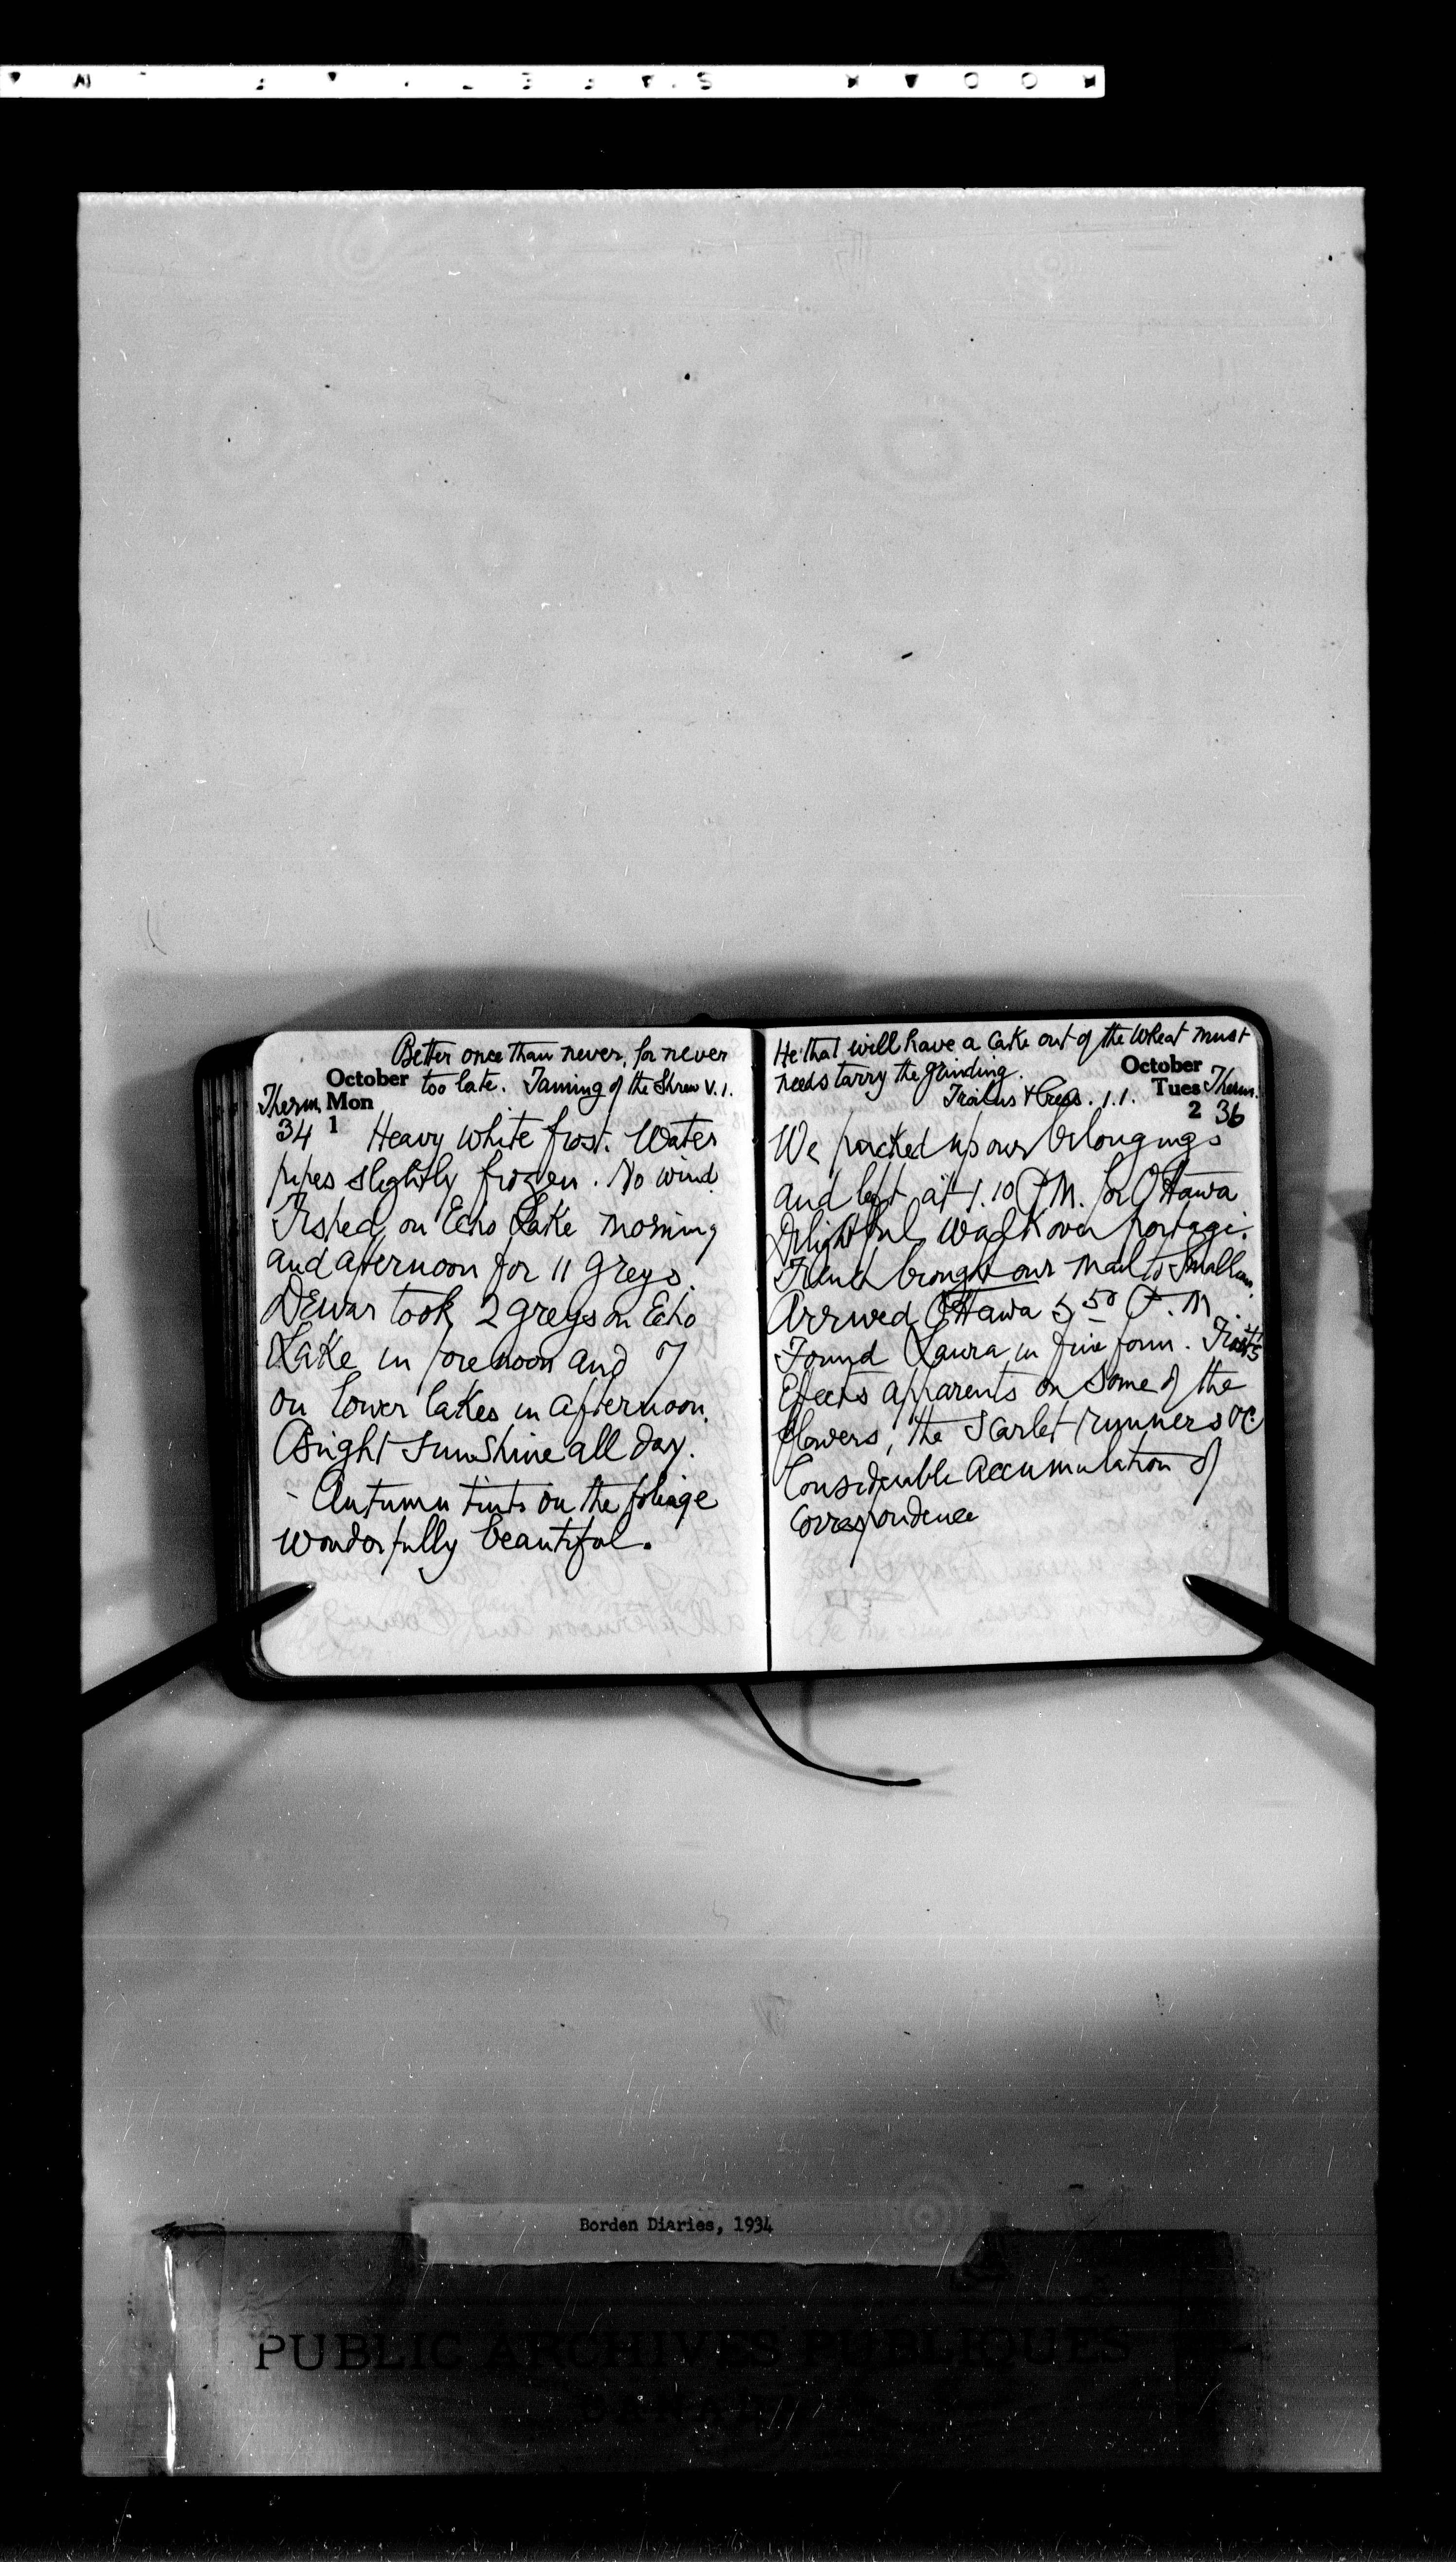 Better once than never, for never
October too late. Taming of the Shrew V.1.
Therm. Mon
34 1 Heavy white frost. Water
pipes slightly frozen. No wind.
Fished on Echo Lake morning
and afternoon for 11 greys.
Dewar took 2 greys on Echo
Lake in forenoon and 7
on lower lakes in afternoon.
Bright sunshine all day.
- Autumn tints on the foliage
wonderfully beautiful.
He that will have a cake out of the wheat must
needs tarry the grinding. October
Troilus & Cress. 1.1. Tues Therm.
2 36
We packed up our belongings
and left at 1.10 P.M. for Ottawa
Delightful walk over portage.
brought our mail to
Arrived Ottawa 5.50 P.M.
Found Laura in fine form. Frost's
effects apparents on some of the
flowers, the scarlet runners &c
Considerable accumulation of
correspondence
Borden Diaries, 1934
PUBLIC ARCHIVES PUBLIQUES
CANADA